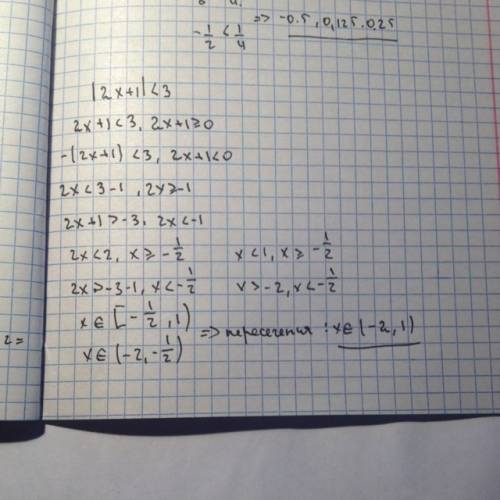 -1/2 < 1/4 => -0.5, 0,125. 0.25
|2x+1|<3
2x+1<3, 2x+1≥0
-(2x+1) <3, 2x+1<0
2x<3-1, 2x≥-1
2x+1>-3, 2x<-1
2x<2, x≥-1/2 x<1, x≥-1/2
2x>-3-1, x<-1/2 x>-2, x<-1/2
x∈[-1/2, 1)
=> пересечения : x∈(-2,1)
x∈(-2,-1/2)
2=